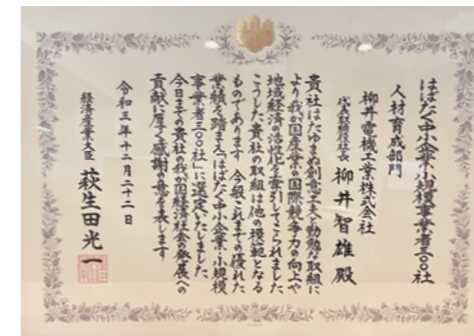 はばたく中小企業・小規模事業者三〇〇社
人材育成部門
柳井電機工業株式会社
代表取締役社長 柳井智雄殿
貴社はたゆまぬ創意工夫と勤勉な取組に
より我が国産業の国際競争力の向上や
地域経済の活性化を牽引してこられました
こうした貴社の取組は他の模範となる
ものであります 今般これまでの優れた
業績を踏まえはばたく中小企業・小規模
事業者三〇〇社」に選定いたしました
今日までの貴社の我が国経済社会の発展への
貢献に厚く感謝の意を表します
令和三年十二月二十二日
経済産業大臣 萩生田光一